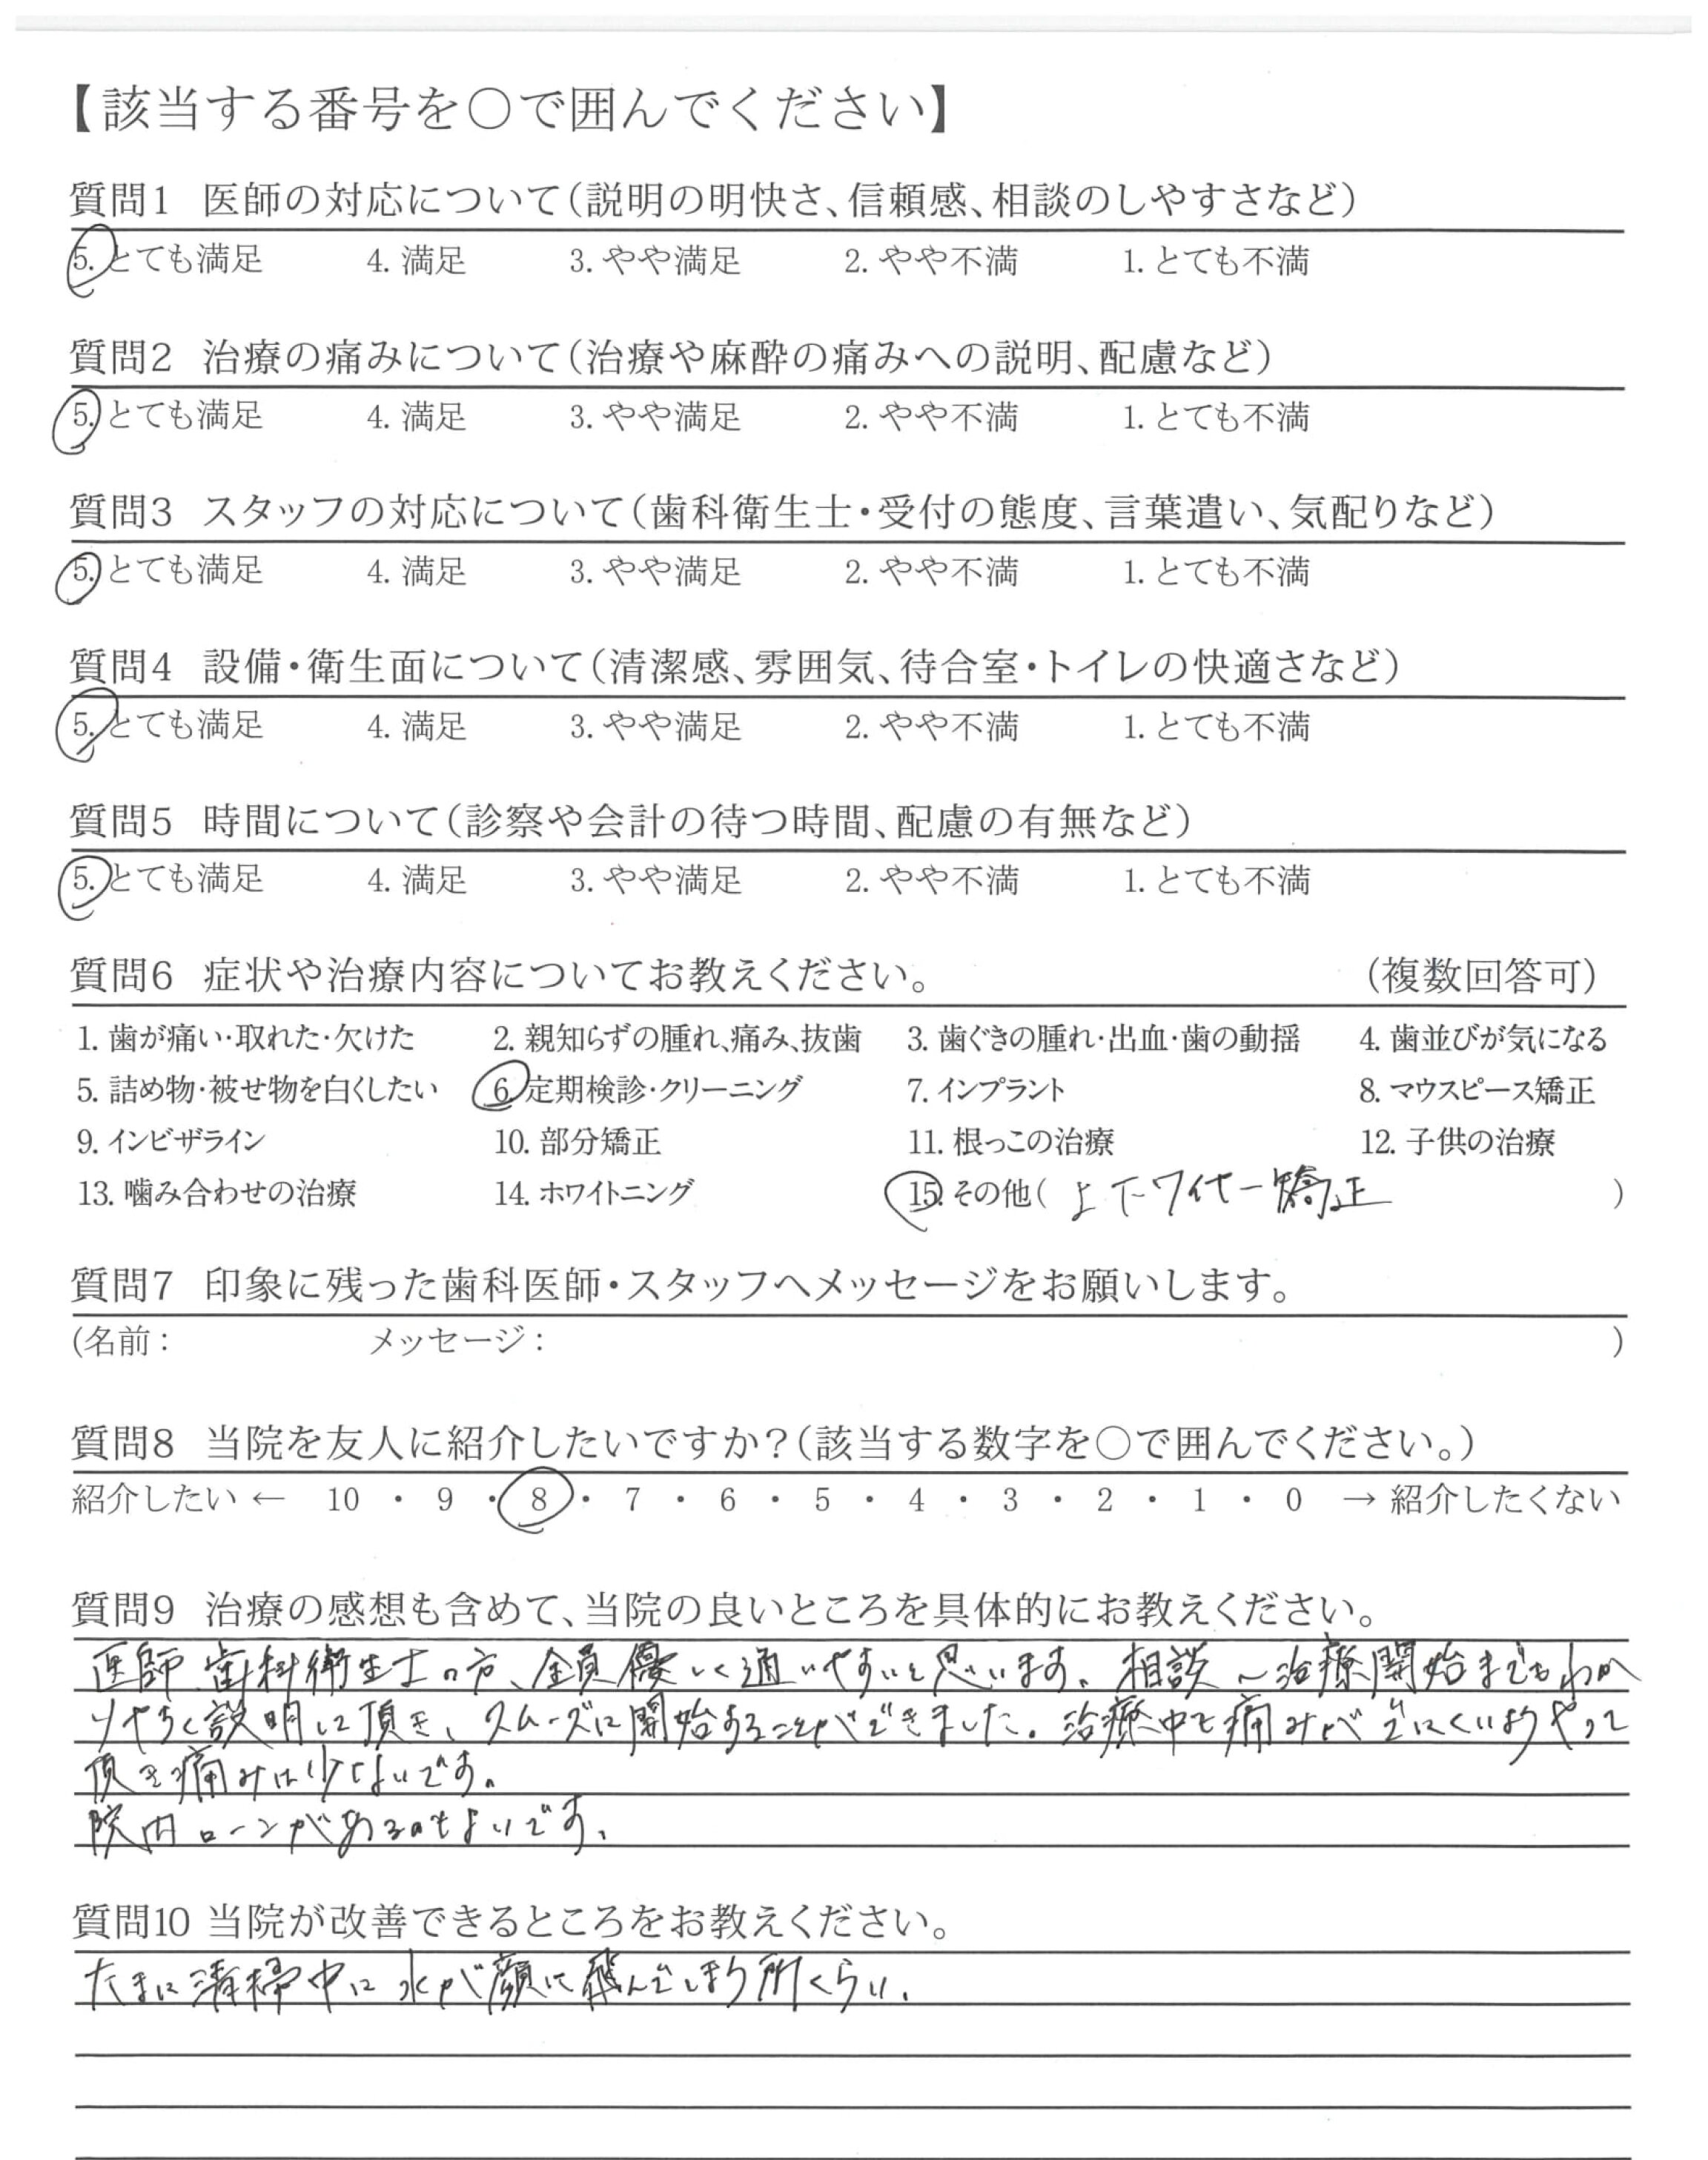 【該当する番号を○で囲んでください】
質問1 医師の対応について(説明の明快さ、信頼感、相談のしやすさなど)
5. とても満足 4. 満足 3. やや満足 2. やや不満 1. とても不満
質問2 治療の痛みについて(治療や麻酔の痛みへの説明、配慮など)
5. とても満足 4. 満足 3. やや満足 2. やや不満 1. とても不満
質問3 スタッフの対応について(歯科衛生士・受付の態度、言葉遣い、気配りなど)
5. とても満足 4. 満足 3. やや満足 2. やや不満 1. とても不満
質問4 設備・衛生面について(清潔感、雰囲気、待合室・トイレの快適さなど)
5. とても満足 4. 満足 3. やや満足 2. やや不満 1. とても不満
質問5 時間について(診察や会計の待つ時間、配慮の有無など)
5. とても満足 4. 満足 3. やや満足 2. やや不満 1. とても不満
質問6 症状や治療内容についてお教えください。 (複数回答可)
1. 歯が痛い・取れた・欠けた 2. 親知らずの腫れ、痛み、抜歯 3. 歯ぐきの腫れ・出血・歯の動揺 4. 歯並びが気になる
5. 詰め物・被せ物を白くしたい 6. 定期検診・クリーニング 7. インプラント 8. マウスピース矯正
9. インビザライン 10. 部分矯正 11. 根っこの治療 12. 子供の治療
13. 噛み合わせの治療 14. ホワイトニング 15. その他( 上下ワイヤー矯正 )
質問7 印象に残った歯科医師・スタッフへメッセージをお願いします。
(名前: メッセージ: )
質問8 当院を友人に紹介したいですか?(該当する数字を○で囲んでください。)
紹介したい ← 10 ・ 9 ・ 8 ・ 7 ・ 6 ・ 5 ・ 4 ・ 3 ・ 2 ・ 1 ・ 0 → 紹介したくない
質問9 治療の感想も含めて、当院の良いところを具体的にお教えください。
医師、歯科衛生士の方、全員優しく通いやすいと思います。相談～治療開始までもわか
りやすく説明して頂き、スムーズに開始することができました。治療中も痛みがでにくいようやって
頂き痛みは少ないです。
院内ローンがあるのもよいです。
質問10 当院が改善できるところをお教えください。
たまに清掃中に水が顔に飛んでしまう所くらい。